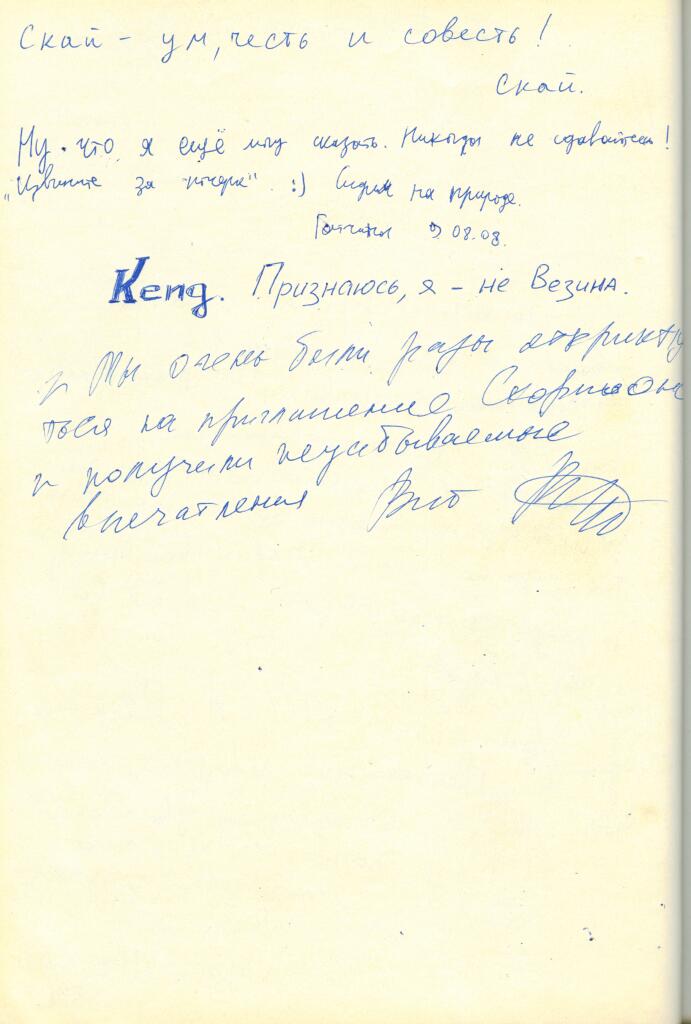 Скай - ум, честь и совесть!
Скай.
Ну что я ещё могу сказать. Никогда не сдавайтесь!
"Извините за почерк" :) Сидим на природе.
Гатчина 9 08.08.
Keng. Признаюсь, я - не Везина.
Мы очень были рады откликну
ться на приглашение
и получили незабываемые
впечатления